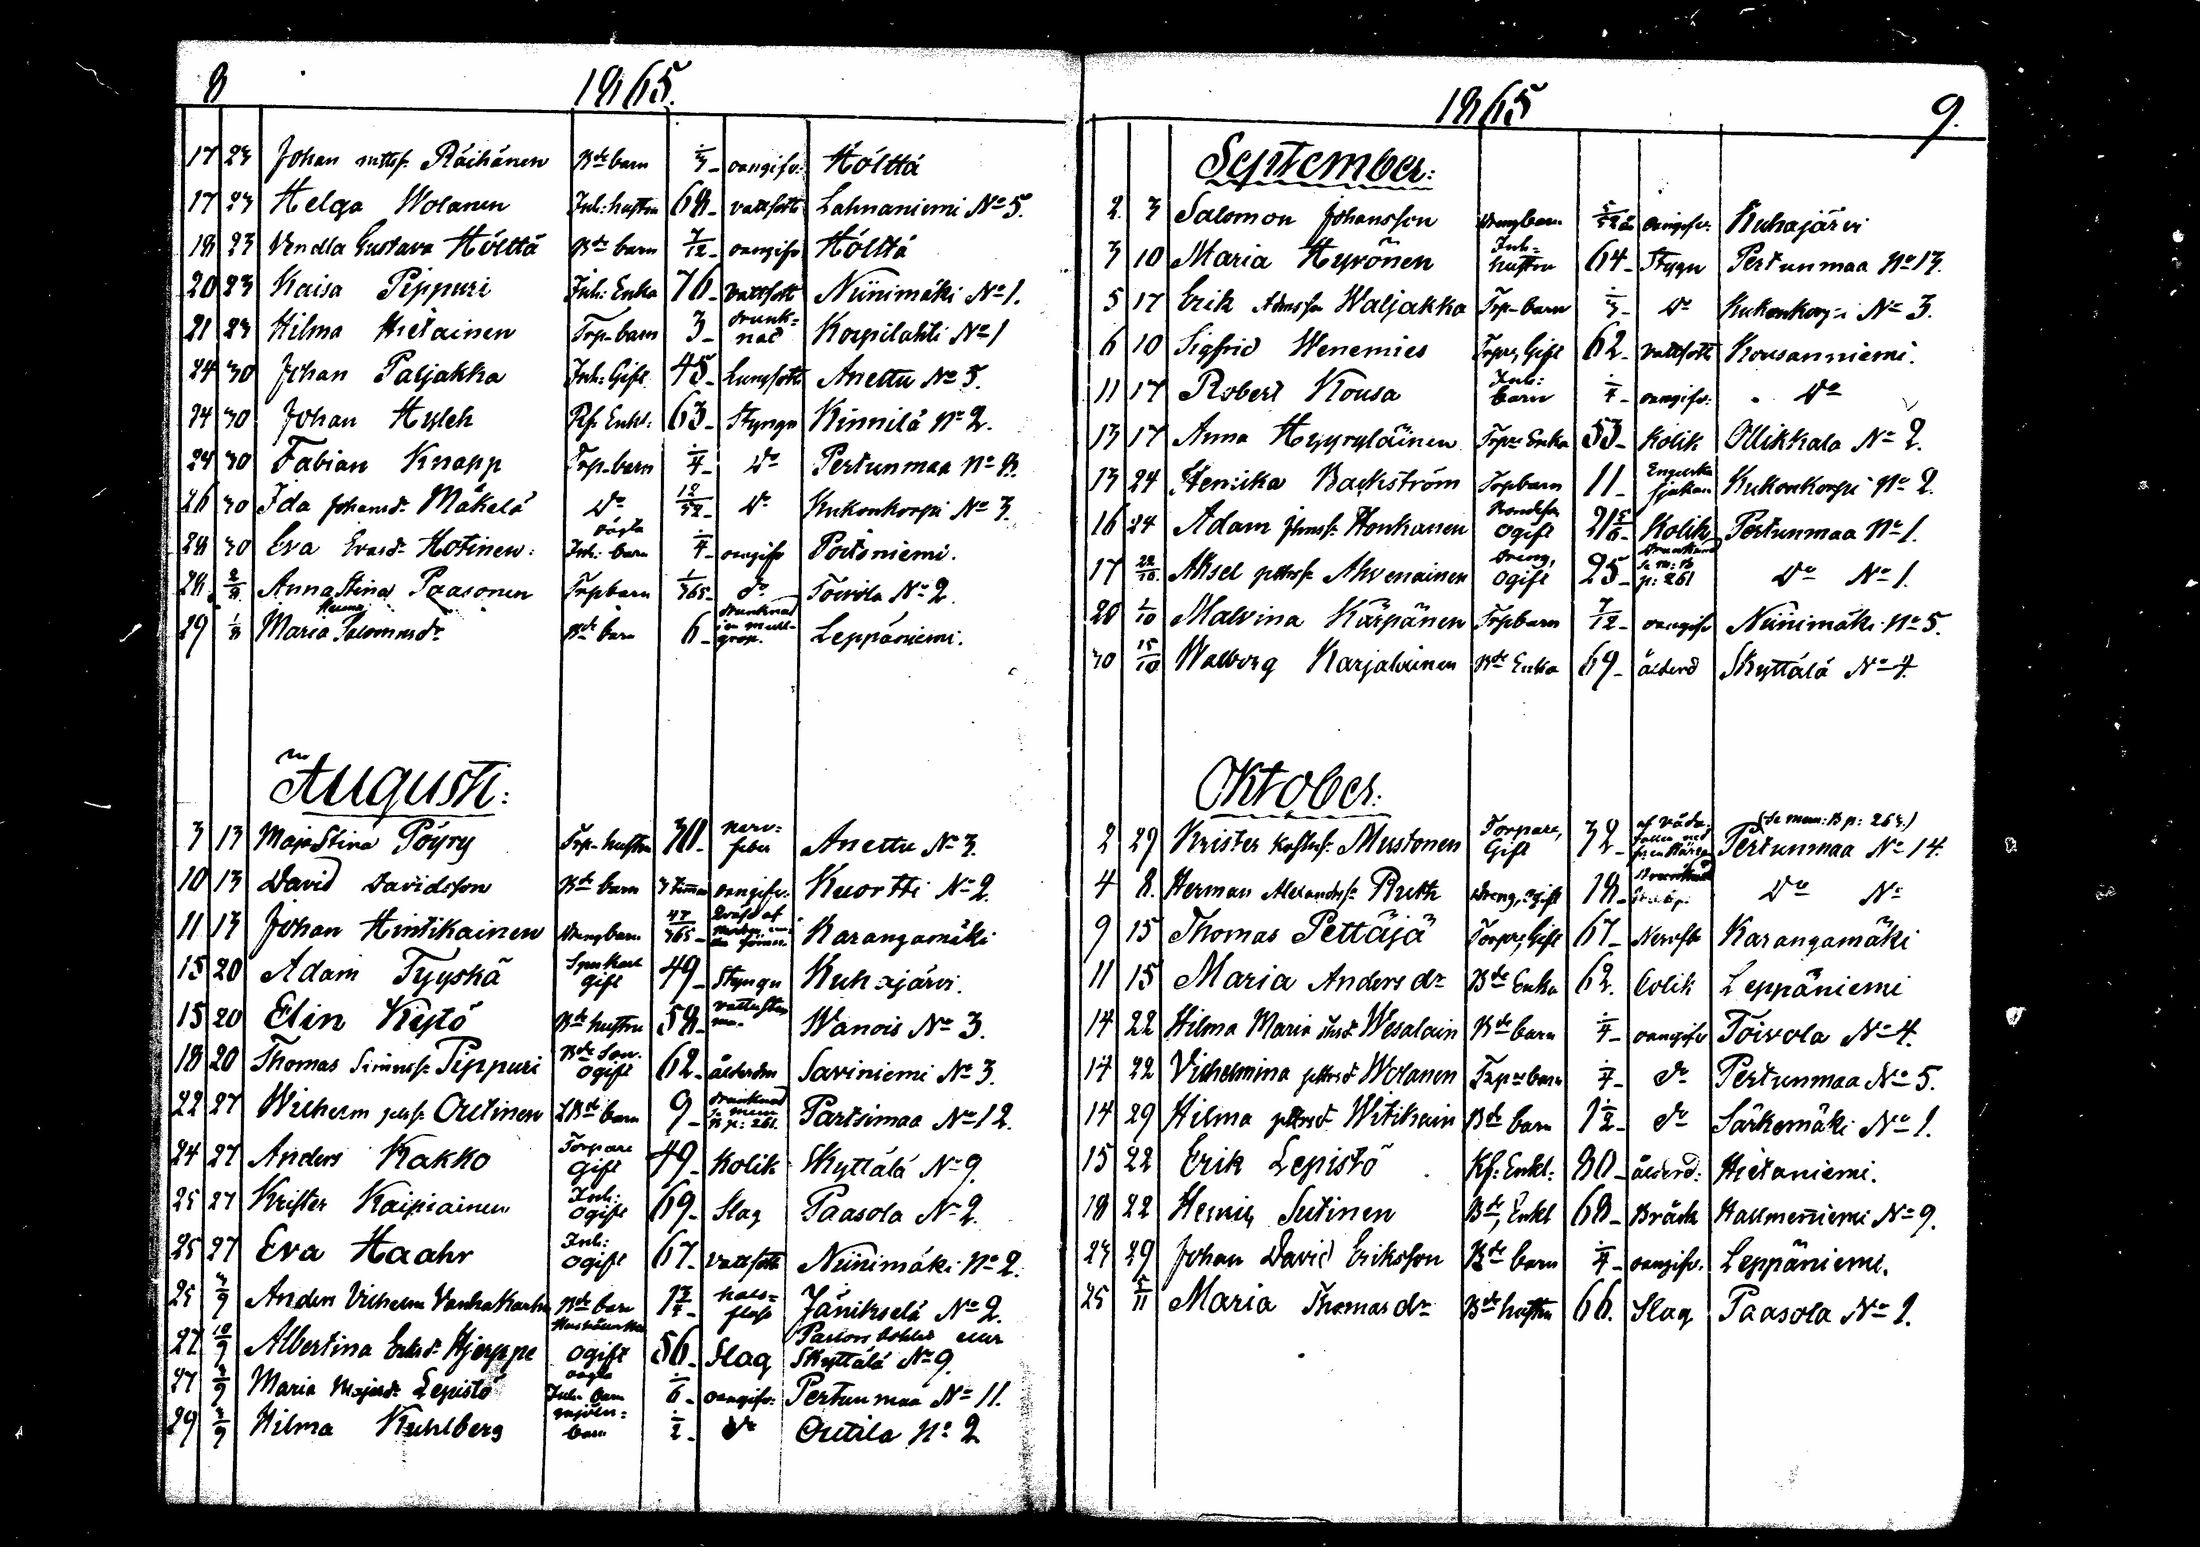 8 1865.
17 23 Johan mttss. Räihänen Bde barn ÷/3 oangifv: Hölttä
17 23 Helga Wolanen Inh: hustru 68 vattsott Lahnaniemi No 5.
18 23 Vendla Gustava Hölttä Bde barn 7/12 oangifv Hölttä
20 23 Kaisa Pippuri Inh: Enka 76 vattsott Niinimäki No 1.
21 23 Hilma Hietainen Trp-barn 3 drunk=nad Korpilahti No 1
24 30 Johan Paljakka Inh: Gift 45 Lungsott Anettu No 5.
24 30 Johan Hyleh Rf. Enkl: 63 Styngn Kinnilä No 2.
24 30 Fabian Knapp Trp-barn ÷/4 Do Pertunmaa No 8.
26 30 Ida Johansdr Mäkelä Do 12/52 Do Kukonkorpi No 3.
28 30 Eva Evasdr Hotinen: oägta Inh: barn ÷/4 oangifv Poitsniemi.
28 2/8 Anna Stina Paasonen Trpbarn 1/365 do Toivola No 2.
29 1/8 Maria Salomonsdr Bde barn 6 drunknad i en mull-grop. Leppäniemi.
Augusti:
3 13 Maja Stina Pöyry Trp-hustru 30 nerv=feber Anettu No 3.
10 13 David Davidsson Bde barn 3 timmar oangifv: Kuortti No 2.
11 13 Johan Hintikainen Drengbarn 47/365 Karangamäki
15 20 Adam Tyyskä gift 49 Styngn Kuhajärvi.
15 20 Elin Kystö Bde hustru 58 Wanois No 3.
18 20 Thomas Simonss. Pippuri Bde Son. ogift 62 ålderdom Saviniemi No 3.
22 27 Wilhelm Outinen Bde barn 9 drunknad Se mem B p: 261. Partsimaa No 12.
24 27 Anders Kakko Torpare gift 49 Kolik Skyttälä No 9.
25 27 Krister Kaipiainen Inh: ogift 69 Slag Paasola No 2.
25 27 Eva Haahr Inh: ogift 67 vattsott Niinimäki No 2.
25 3/9 Anders Vilhelm Vanhakartano Bde barn 1 3/4 hals=flass Jänikselä No 2.
27 10/9 Albertina Eriksdr Hjerppe ogift 56 Slag Pastors bohlet eller Skyttälä No 9.
27 3/9 Maria Majasdr Lepistö oägta Inh. barn ÷/6 oangifv: Pertunmaa No 11.
29 3/9 Hilma Kuhlberg mjöln=barn ÷/2 do Outila No 2
1865 9.
September:
2. 3 Salomon Johansson Drengbarn 5/52 oangifv: Kuhajärvi
3 10 Maria Hyrönen Inh=hustru 64 Stygn Pertunmaa No 13.
5 17 Erik Adamss Waljakka Trp-barn ÷/3 Do Kukonkorpi No 3.
6 10 Sigfrid Wenemies Torpr, Gift 62 vattsott Kousanniemi.
11 17 Robert Kousa Inh: barn ÷/4 oangifv: Do
13 17 Anna Hyyryläinen Trpr Enka 53 Kolik Ollikkala No 2.
13 24 Henrika Backström Torpbarn 11 Engelska sjukan Kukonkorpi No 2.
16 24 Adam Honkanen Bondeson ogift 21 5/6 Kolik Pertunmaa No 1.
17 22/10 Aksel Ahvenainen Dreng, ogift 25 Drunknad Se m: B p: 261 Do No 1.
20 1/10 Malvina Kärpänen Trpbarn 7/12 oangifv Niinimäki No 5.
30 15/10 Walborg Karjalainen Bde Enka 69 ålderd Skyttälä No 4.
Oktober:
2 29 Krister Mustonen Torpare, Gift 32 af våda fallen ned (Se mem: B p: 263.) Pertunmaa No 14.
4 8. Herman Alexanderss. Ruth Dreng, ogift 18 Drunknad Do No
9 15 Thomas Pettäjä Torpr, Gift 67 Nervfb Karangamäki
11 15 Maria Andersdr Bde Enka 62. Colik Leppäniemi
14 22 Hilma Maria Wesalain Bde barn ÷/4 oangifv Toivola No 4.
14 22 Vilhelmina Wolanen Trpr barn ÷/4 do Pertunmaa No 5.
14 29 Hilma Witikain Bde barn 1 ÷/2 do Särkemäki No 1.
15 22 Erik Lepistö Kf: Enkl: 80 ålderd: Hietaniemi.
18 22 Henrik Sutinen Bde, Enkl 68 Bråck Hallmenniemi No 9.
23 29 Johan David Eriksson Bde barn ÷/4 oangifv. Leppäniemi.
25 5/11 Maria Thomasdr Bde hustru 66. Slag Paasola No 1.